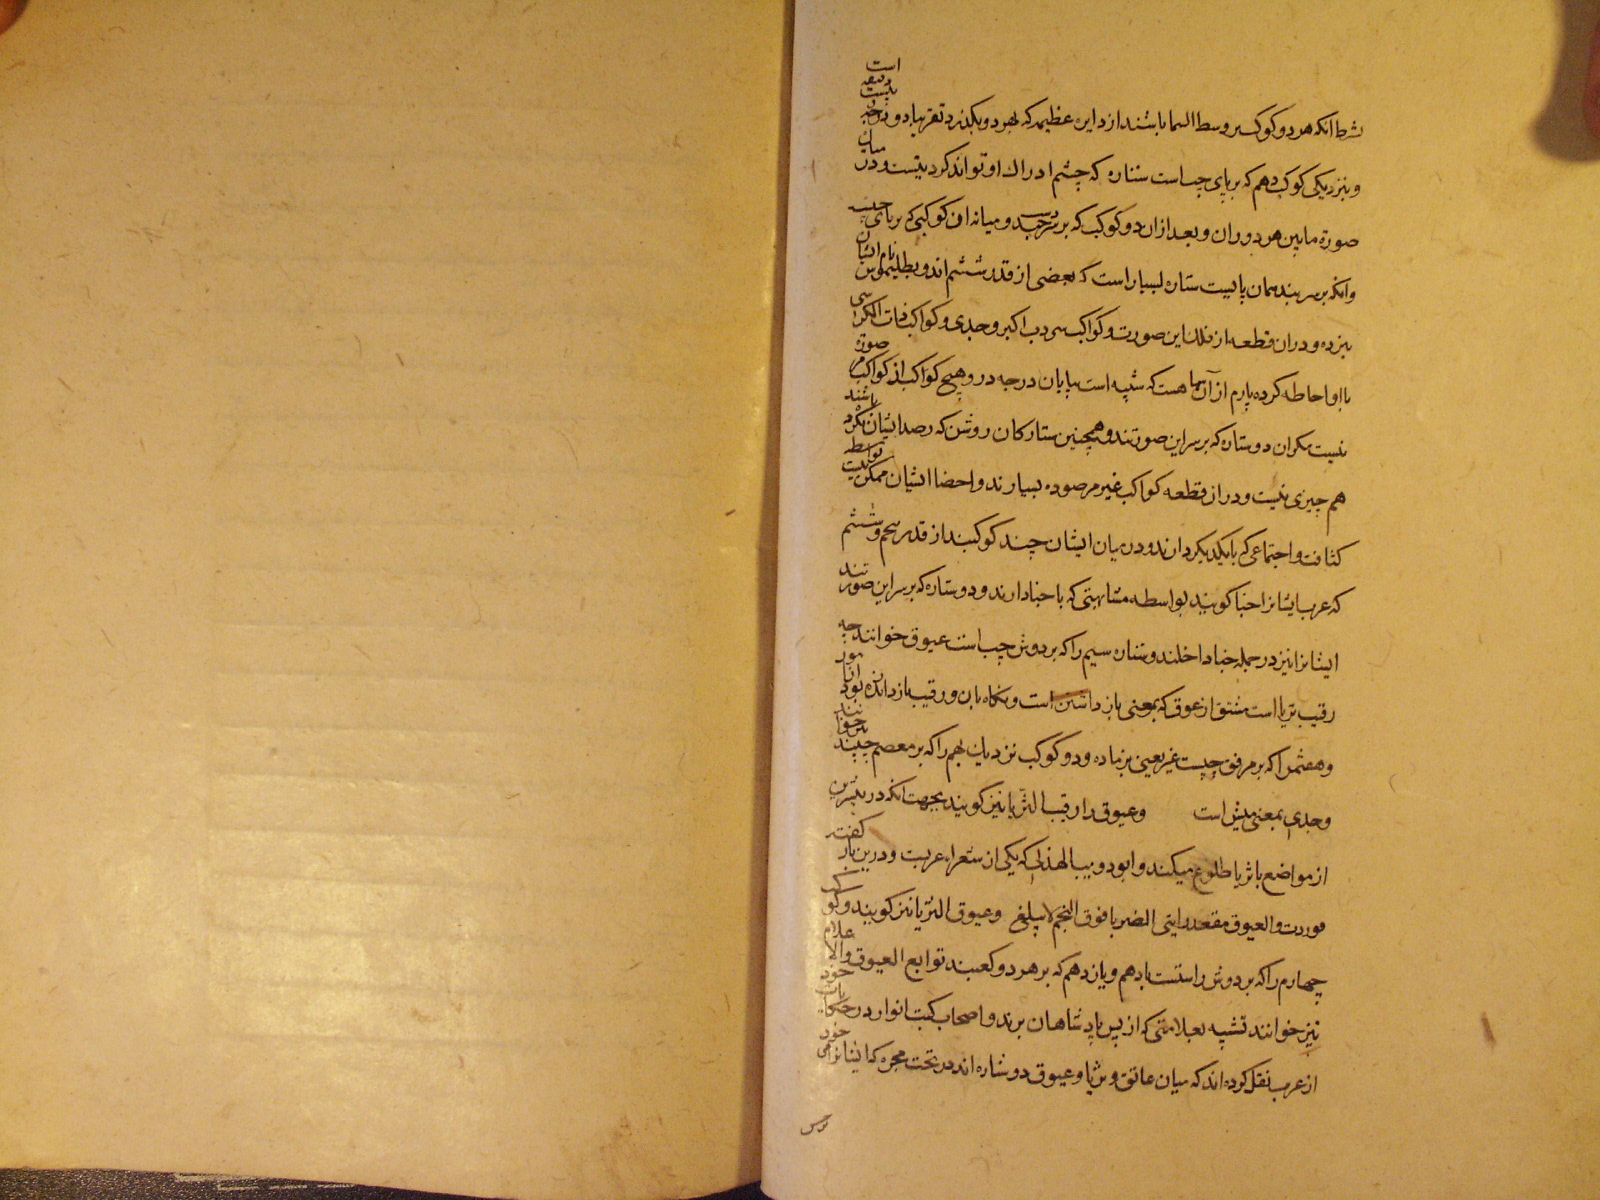 بشرط آنکه هر دو کوکب بر وسط السما باشند از دایره عظیمه که بهر دو بگذرد تقریبا دو درجه و بیست دقیقه است
و بنزدیکی کوکب دهم که بر پای چپ است ستاره که چشم ادراک او تواند کرد نیست و در میان
صورة ما بین هر دو ران و بعد ازان دو کوکب که بر سر دست چپند و میانه ان کوکبی که بر پای چپست
و انکه بر سر بند همان پا بیست ستاره بسیار است که بعضی از قدر ششم اند و بطلیموس نام ایشان
نبرده و دران قطعه از فلک این صورت و کواکب دب اکبر و جدی و کواکب ذات الکرسی
با او احاطه کرده پارم از آن سما هست که شبیه است بپایان درجه در و هیچ کواکب از کواکب صورة
نیست مگر ان دو ستاره که بر سر این صورتند و همچنین ستارکان روشن که رصد ایشان نکرده باشند
هم چیزی نیست و در از قطعه کواکب غیر مرصوده بسیارند و احصا ایشان ممکن نیست بواسطه
کثافت و اجتماعی که با یکدیکر دارند و در میان ایشان چند کوکبند از قدر پنجم و ششم
که عرب ایشانرا خبا کویند بواسطه مشابهتی که با خبا دارند و دو ستاره که بر سر این صورتند
ایشانرا نیز در جمله خبا داخلند و ستاره سیم را که بر دوش چپ است عیوق خوانند چه
رقیب ثریا است مشتق از عوق که بمعنی باز داشتن است و نکاه بان و رقیب باز دارنده بود
و هفتم را که بر مرفق چپست عنز یعنی بز ماده و دو کوکب نزدیک بهم را که بر معصم چپند خوانند
و جدی بمعنی میش است و عیوق را رقیب الثریا نیز کویند بجهت انکه در بیشترین
از مواضع با ثریا طلوع میکند و ابو ذویب الهذلی که یکی از شعراء عربست و درین باب کفت
فوردت و العیوق مقعد رابی الضربا فوق النجم لا یتلع و عیوق الثریا نیز کویند و کو
چهارم را که بر دوش راستست با دهم و یازدهم که بر هر دو کعبند توابع العیوق و الاعلام
نیز خوانند تشبیه بعلامتی که از پس پادشاهان برند و اصحاب کتب انوار در حکایات خود
از عرب نقل کرده اند که میان عاتق و ثریا و عیوق دو ستاره اند در تحت مجره که ایشانرا